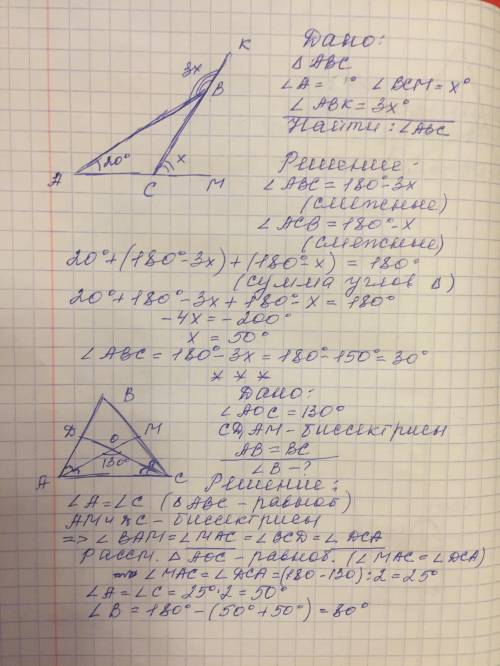 K
3x
B
20°
x
A
C
M
Дано:
△ABC
∠A= ° ∠BCM=x°
∠ABK=3x°
Найти: ∠ABC
Решение
∠ABC=180°-3x
(смежные)
∠ACB=180°-x
(смежные)
20°+(180°-3x)+(180°-x)=180°
(сумма углов △)
20°+180°-3x+180°-x=180°
-4x=-200°
x=50°
∠ABC=180°-3x=180°-150°=30°
* * *
B
D
O
M
130°
A
C
Дано:
∠AOC=130°
CD, AM-биссектрисы
AB=BC
∠B-?
Решение:
∠A=∠C (△ABC-равноб)
AM и DC-биссектрисы
=> ∠BAM=∠MAC=∠BCD=∠DCA
Рассм. △AOC-равноб. (∠MAC=∠DCA)
=> ∠MAC=∠DCA=(180-130):2=25°
∠A=∠C=25°·2=50°
∠B=180°-(50°+50°)=80°